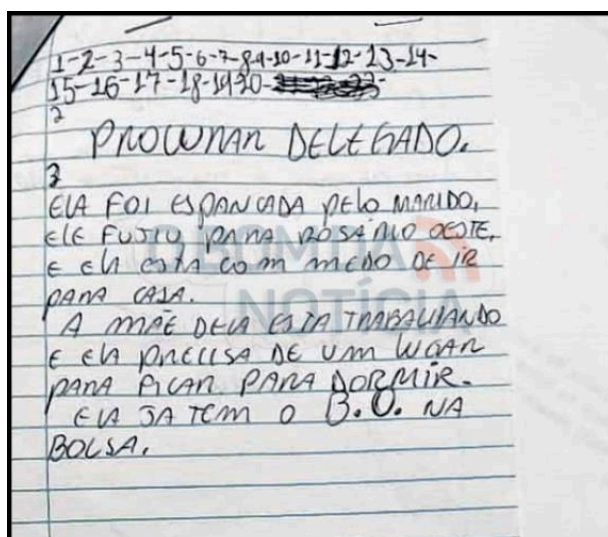 1-2-3-4-5-6-7-8-9-10-11-12-13-14-
15-16-17-18-19-20-
2
PROCURAR DELEGADO.
3
ELA FOI ESPANCADA PELO MARIDO,
ELE FUGIU PARA ROSÁRIO OESTE,
E ELA ESTA COM MEDO DE IR
PARA CASA.
A MÃE DELA ESTA TRABALHANDO
E ELA PRECISA DE UM LUGAR
PARA FICAR PARA DORMIR.
ELA JA TEM O B.O. NA
BOLSA.
O BOM DA
NOTÍCIA